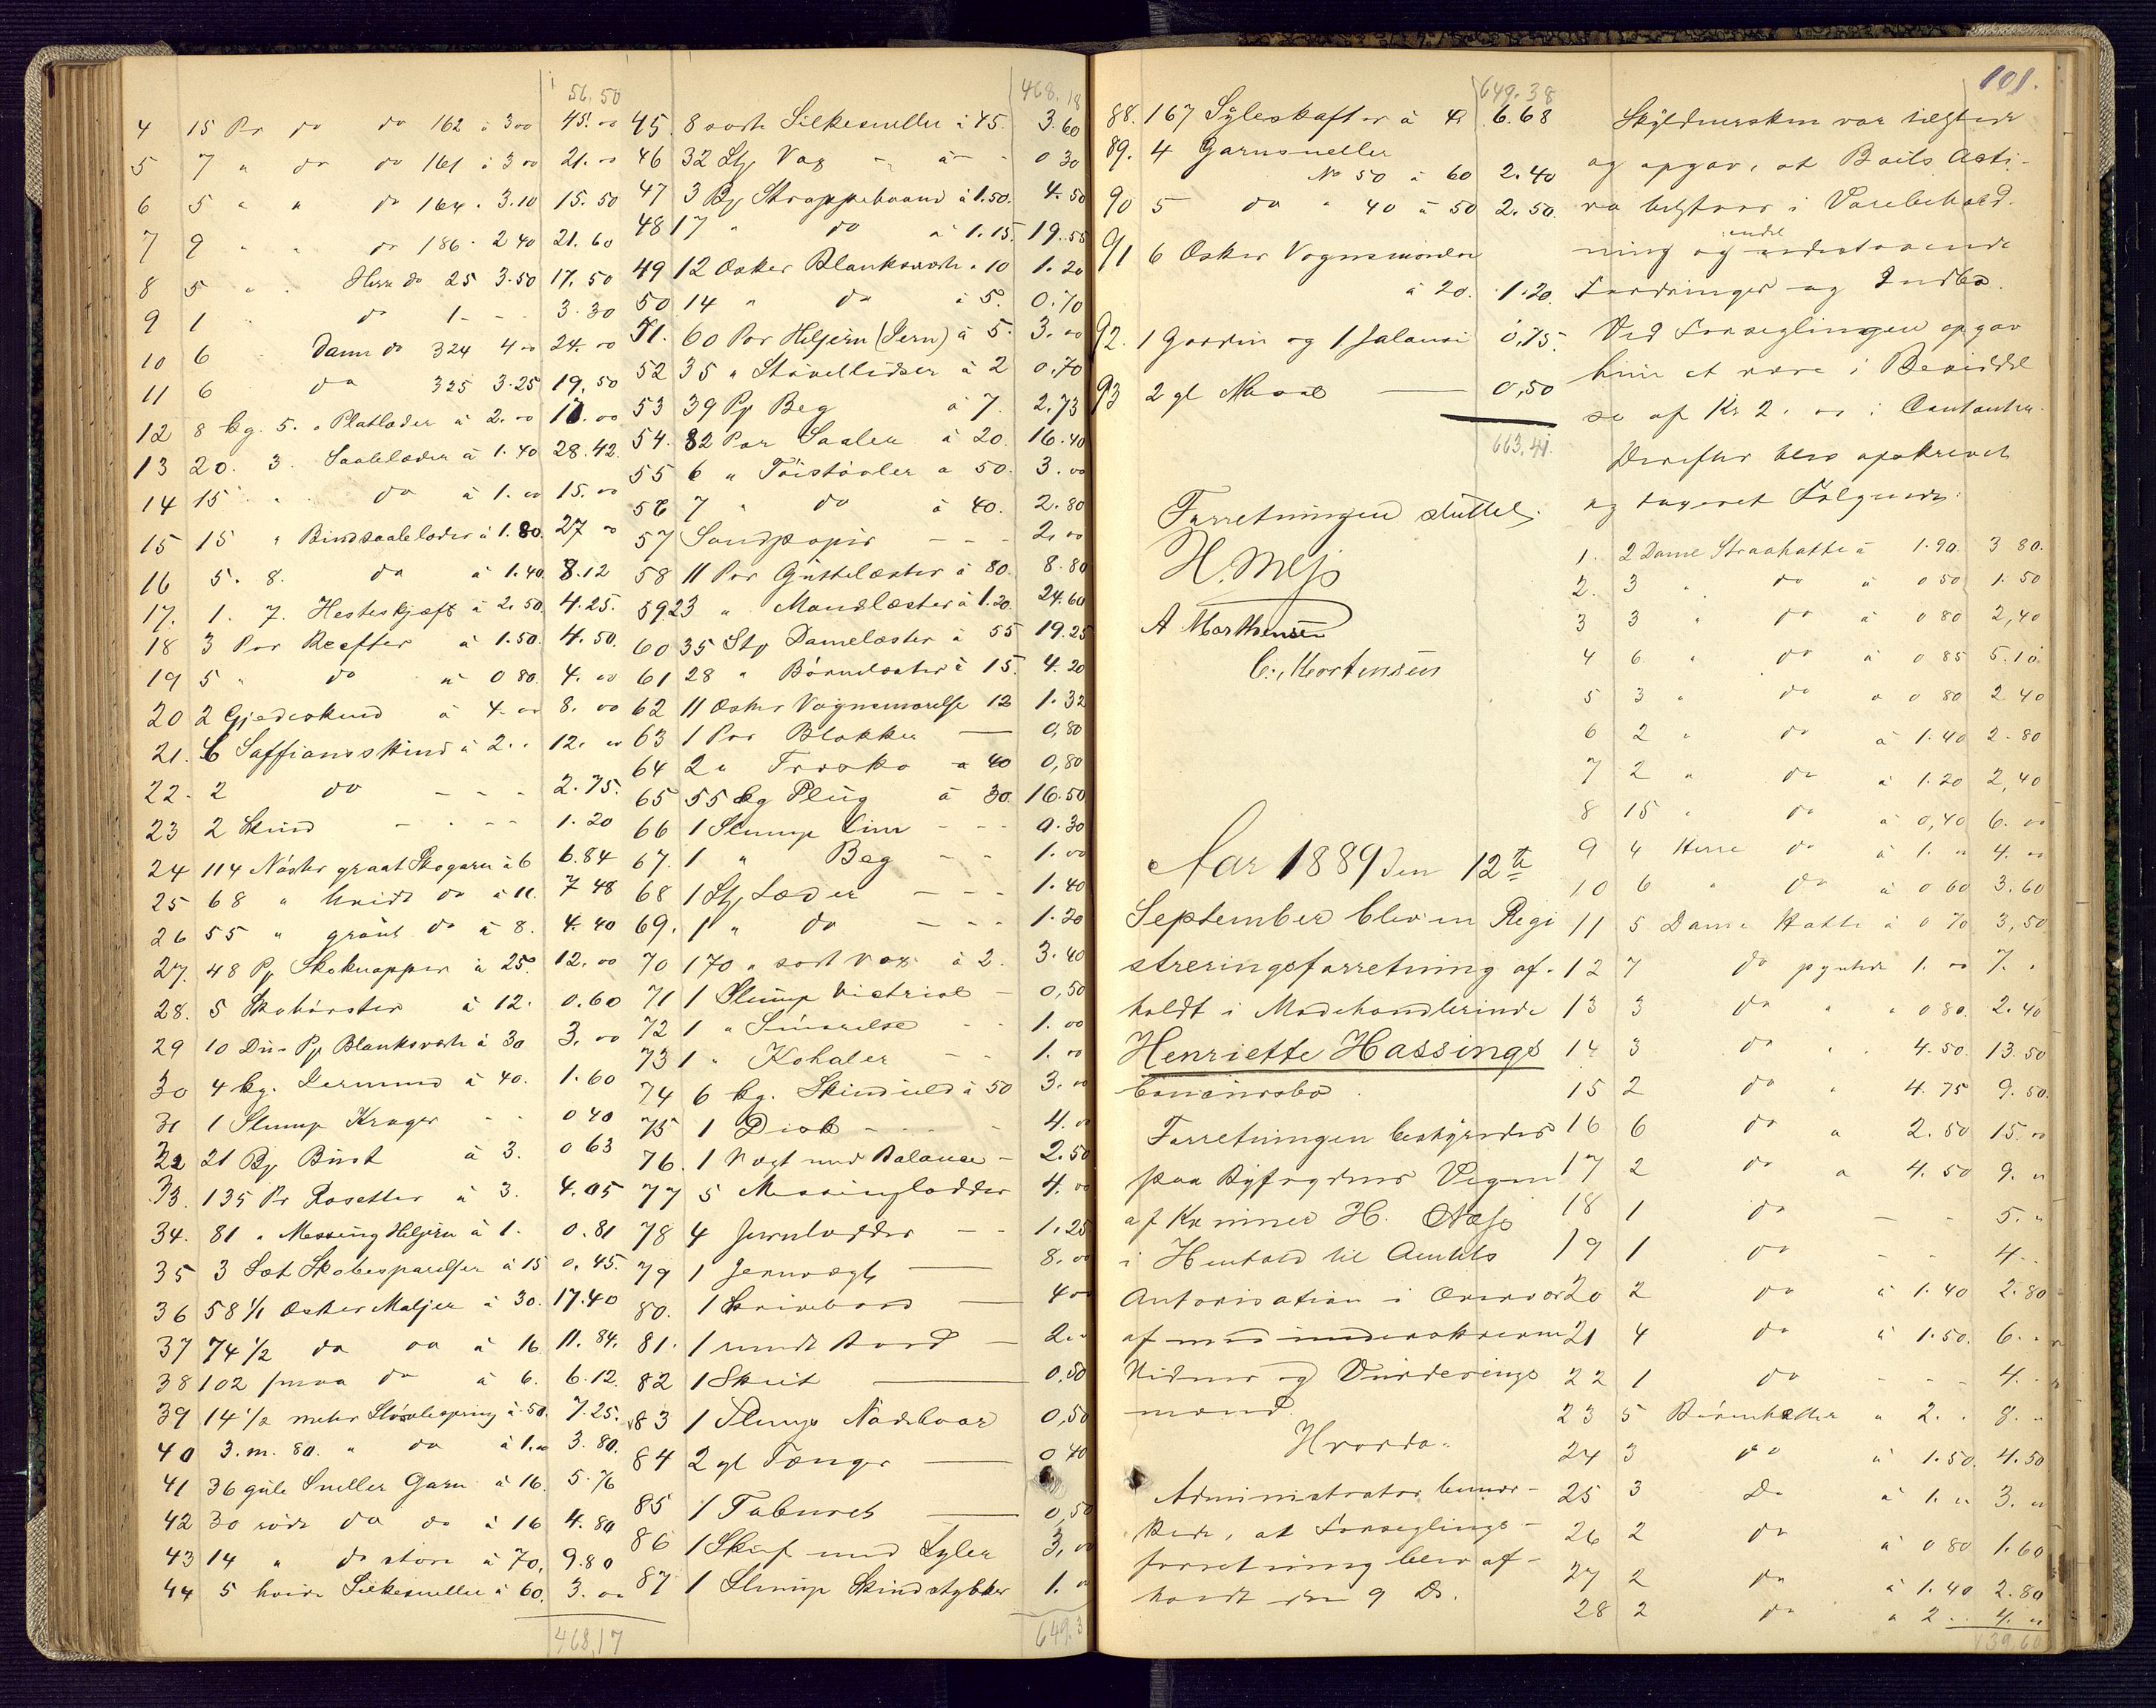 56,50
4 15 Pr do do 162 à 3 00 45. 00
5 7 " do do 161 à 3 00 21. 00
6 5 " " do 164 " 3.10 15. 50
7 9 " " do 186 " 2 40 21. 60
8 5 " " Herre do 25 3.50 17. 50
9 1 " do 1 - - 3. 30
10 6 Dame do 324 4 00 24. 00
11 6 do 325 3.25 19. 50
12 8 kg. 5. " Platlæder à 2. 00
13 20. 3. Saalelæder à 1.40 28.42.
14 15 " " do à 1. 00 15. 00
15 15 " Bindsaalelæder à 1.80. 27 00
16 5. 8. do à 1.40. 8.12
17. 1. 7. Hesteskjæft à 2.50. 4.25.
18 3 Par Reefter à 1.50. 4.50.
19 5 " do à 0 80. 4. 00
20 2 Gjedeskind à 4. 00 8. 00
21. 6 Saffiansskind à 2. " 12. 00
22. 2 do - - - 2.75.
23 2 Skind - - - - 1.20
24 114 Nøster graat Skogarn à 6 6.84
25 68 " hvidt do à 11. 7 48
26 55 " grønt do à 8. 4. 40
27. 48 Pk Skoknapper à 25. 12. 00
28. 5 Skobørster à 12. 0.60
29 10 Dus Pk Blanksværte à 30 3. 00
30 4 kg. à 40. 1.60
31 1 Slump Kroger - - 0 40
32 21 Bg Bust à 3. 0 63
33. 135 Pr Rosetter à 3. 4.05
34. 81 " Messing Heljern à 1. 0.81
35 3 Sæt Skobesparelser à 15 0.45.
36 58 1/1 Æsker Maljer à 30. 17.40
37 74 1/2 do do à 16 11.84.
38 102 smaa do à 6. 6.12.
39 14 1/2 meter à 50. 7.25.
40 3. m. 80. " do à 1. 00 3.80.
41 36 gule Sneller Garn à 16. 5.76
42 30 røde do do à 16 4.80
43 14 " do store à 70. 9.80
44 5 hvide Silkesneller à 60. 3. 00
468,17
468.18
45. 8 sorte Silkesneller à 45. 3.60
46 32 Stk Vax - à - - 0 30
47 3 Bg Stroppebaand à 1.50. 4.50
48 17 " do à 1.15. 19.55
49 12 Æsker Blanksværte " 10 1.20
50 14 " do à 5. 0.70
51. 60 Par Heljern (Jern) à 5. 3. 00
52 35 " Støvellidser à 2 0.70
53 39 Pk Beg à 7. 2.73
54. 82 Par Saaler à 20. 16.40
55 6 " Tøistøvler à 50. 3. 00
56 7 " do à 40. 2.80
57 Sandpapir - - - 2. 00
58 11 Par Guttelæster à 80. 8.80
59 23 " Mandslæster à 1.20. 24.60
60 35 Stk Damelæster à 55 19.25
61 28 " Børnelæster à 15. 4.20
62 11 Æsker Vognsmørelse 12 1.32
63 1 Par Blokker — 0,80
64 2 " Træsko à 40 0,80
65 55 kg Plug à 30. 16.50
66 1 Slump Lim - - - 0.30
67. 1 " Beg - - 1. 00
68 1 Stk Læder - - - 1.40
69. 1 " do - - - 1.20
70 170 " sort Vox à 2. 3.40
71 1 Slump Victriol - 0,50
72 1 " Smørelse - - 1. 00
73 1 " - - 1. 00
74 6 kg. Skinduld à 50 3. 00
75 1 Disk - - - - 4. 00
76. 1 Vægt med Balance - 2.50
77 5 Messinglodder 4. 00
78 4 Jernlodder - - 1.25
79 1 Jernvægt — 8. 00
80. 1 Skrivebord — 4 00
81. 1 rundt Bord — 2. "
82 1 Skilt — 0,50
83 1 Slump 0,50
84 2 gl Tænger — 0 40
85 1 Taburet — 0,50
86 1 Skuf med Syler 3, 00
87 1 Slump Skindstykker 1. 00
649.3
649.38
88. 167 Syleskafter à 4 6.68
89. 4 Garnsneller
No 50 à 60 2.40
90 5 do " 40 à 50 2.50.
91 6 Æsker Vognsmørelse
à 20. 1.20.
92. 1 Gardin og 1 Jalousi 0,75.
93 2 gl — 0,50
663.41.
Forretningen sluttet.
H. Næss
A Marthinsen
C. Mortensen
Aar 1889 den 12te
September blev en Regi
streringsforretning af-
holdt i Modehandlerinde
Henriette Hassings
Concursbo.
Forretningen bestyredes
paa Byfogdens Vegne
af Kæmner H. Næss
i Henhold til Amtets
Autorisation i Overvær
af med underskrevne
Vidner og Vurderings
mænd.
Hvorda:
Administrator bemær-
kede, at Forseglings-
forretning blev af-
holdt den 9 Ds.
101.
Skyldnersken var tilstede
og opgav, at Boets Acti-
va bestaar i Varebehold-
ning og udestaaende
Fordringer og Indbo.
Ved Forseglingen opgav
hun at være i Besiddel
se af Kr 2. 00 i Contanter.
Derefter blev opskrevet
og taxeret Følgende:
1. 2 Dame Straahatte à 1.90. 3 80.
2. 3 " do à 0 50 1.50
3 3 " do à 0 80 2,40
4 6 " do à 0 85 5.10
5 3 " do à 0 80 2 40
6 2 " do à 1.40 2.80
7 2 " do à 1.20 2,40
8 15 " do à 0,40 6. 00
9 4 Herre do à 1. 00 4. 00
10 6 " do à 0 60 3.60
11 5 Dame Hatte à 0 70 3,50
12 7 do pyntede 1. 00 7. "
13 3 do " " 0 80. 2.40
14 3 do " . 4.50. 13.50
15 2 do " 4.75 9.50.
16 6 do " 2.50 15. 00
17 2 do " 4.50 9. 00
18 1 do - - 5. "
19 1 do - - 4. "
20 2 do à 1.40 2.80
21 4 do à 1.50. 6. "
22 1 do - - - 4. "
23 5 Børnehatter " 2. " 8. "
24 3 do à 1.50. 4.50
25 3 Do à 1. 00 3. 00
26 2 do à 0 80 1.60
27 2 do à 1.40 2.80
28 2 do à 2. " 4. 00
139,60